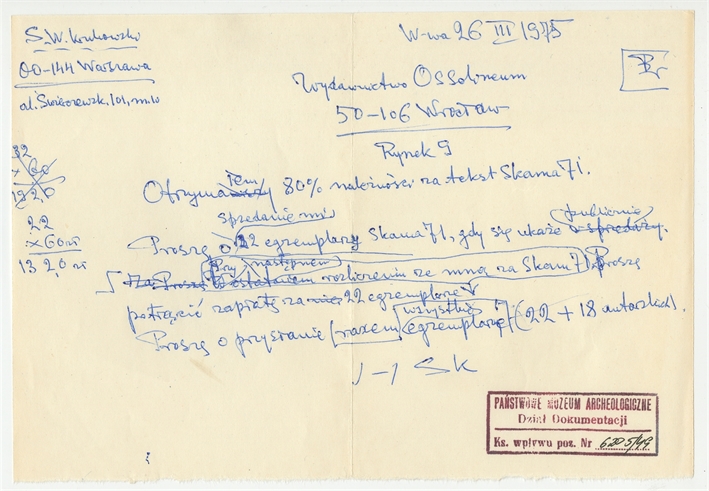 S.W. Krukowski
00-144 Warszawa
al. Świerczewsk. 101, m. 10
W-wa 26 III 1975
Br
Wydawnictwo Ossolineum
50-106 Wrocław
Rynek 9
32
x 60
1920
22
x 60 zł
1320 zł
Otrzymałem 80% należności za tekst Skama 71.
sprzedanie mi publicznie
Proszę o 22 egzemplarzy Skama 71, gdy się ukaże w sprzedaży.
Przy następnem
Proszę w ostatniem rozliczeniu ze mną za Skam 71 Proszę
potrącić zapłatę za 22 egzemplarze
wszystkie
Proszę o przysłanie razem egzemplarzy (22 + 18 autorskich).
SK
PAŃSTWOWE MUZEUM ARCHEOLOGICZNE
Dział Dokumentacji
Ks. wpływu poz. Nr